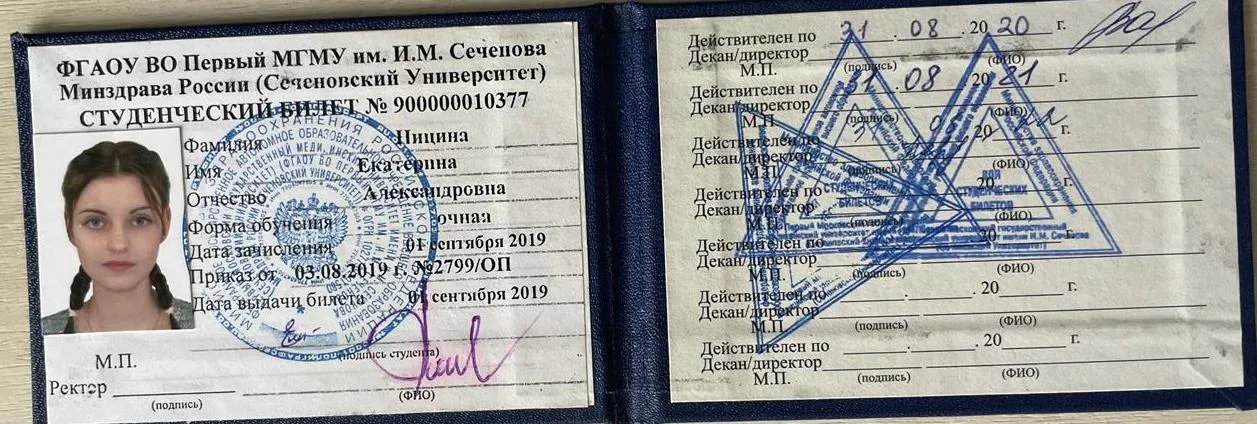 ФГАОУ ВО Первый МГМУ им. И.М. Сеченова
Минздрава России (Сеченовский Университет)
СТУДЕНЧЕСКИЙ БИЛЕТ № 900000010377
Фамилия Ницина
Имя Екатерина
Отчество Александровна
Форма обучения очная
Дата зачисления 01 сентября 2019
Приказ от 03.08.2019 г. №2799/ОП
Дата выдачи билета 01 сентября 2019
(подпись студента)
М.П.
Ректор
(подпись) (ФИО)
Действителен по 31 . 08 . 20 20 г.
Декан/директор
М.П. (подпись) (ФИО)
Действителен по 31 . 08 20 21
Декан/директор
М.П. (подпись) (ФИО)
Действителен по 20
Декан/директор
М.П. (ФИО)
Действителен по 20
Декан/директор
М.П. (подпись) (ФИО)
Действителен по 20 г.
Декан/директор
М.П. (подпись) (ФИО)
Действителен по . . 20 г.
Декан/директор
М.П. (подпись) (ФИО)
Действителен по . . 20 г.
Декан/директор
М.П. (подпись) (ФИО)
ДЛЯ
СТУДЕНЧЕСКИХ
БИЛЕТОВ